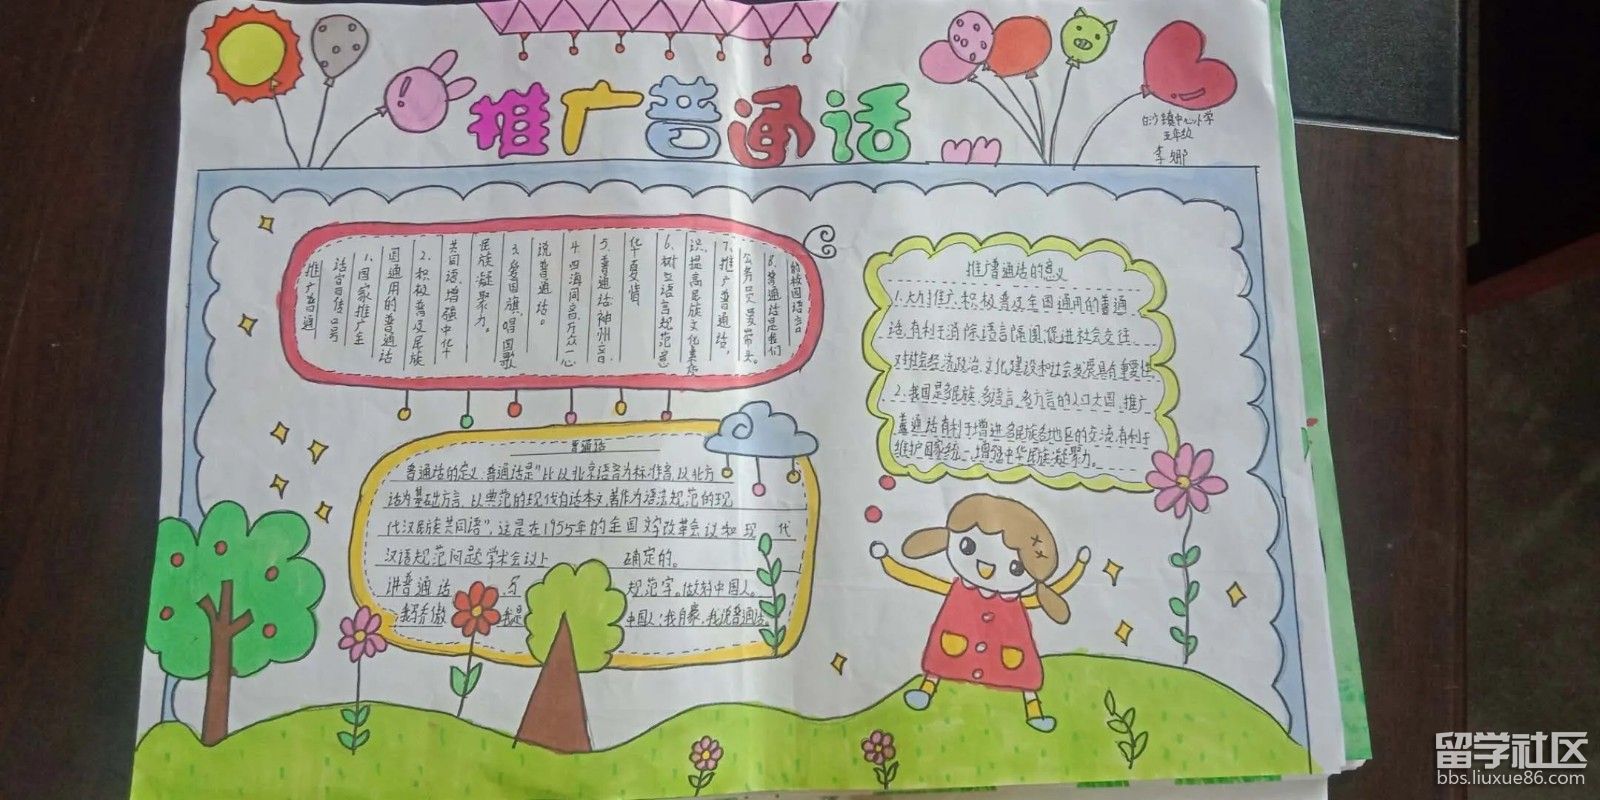 推广普通话
白沙镇中心小学
五年级
李娜
推广普通
话宣传口号
1.国家推广全
国通用的普通话
2.积极普及民族
共同语,增强中华
民族凝聚力。
3.爱国旗,唱国歌
说普通话。
4.四海同音,万众一心
5.普通话:神州音,
华夏情
6.树立语言规范意
识,提高民族文化素质
7.推广普通话,
公务员要带头。
8.普通话是我们
的校园语言。
推广普通话的意义
1.大力推广、积极普及全国通用的普通
话,有利于消除语言隔阂,促进社会交往,
对社会经济、政治、文化建设和社会发展具有重要性
2.我国是多民族、多语言、多方言的人口大国,推广
普通话有利于增进各民族各地区的交流,有利于
维护国家统一,增强中华民族凝聚力。
普通话
普通话的定义:普通话是"以北京语音为标准音,以北方
话为基础方言,以典范的现代白话文著作为语法规范的现
代汉民族共同语",这是在1955年的全国文字改革会议和现代
汉语规范问题学术会议上 确定的。
讲普通话 写 规范字。做好中国人。
我骄傲 我是 中国人;我自豪,我说普通话
留学社区
bbs.liuxue86.com